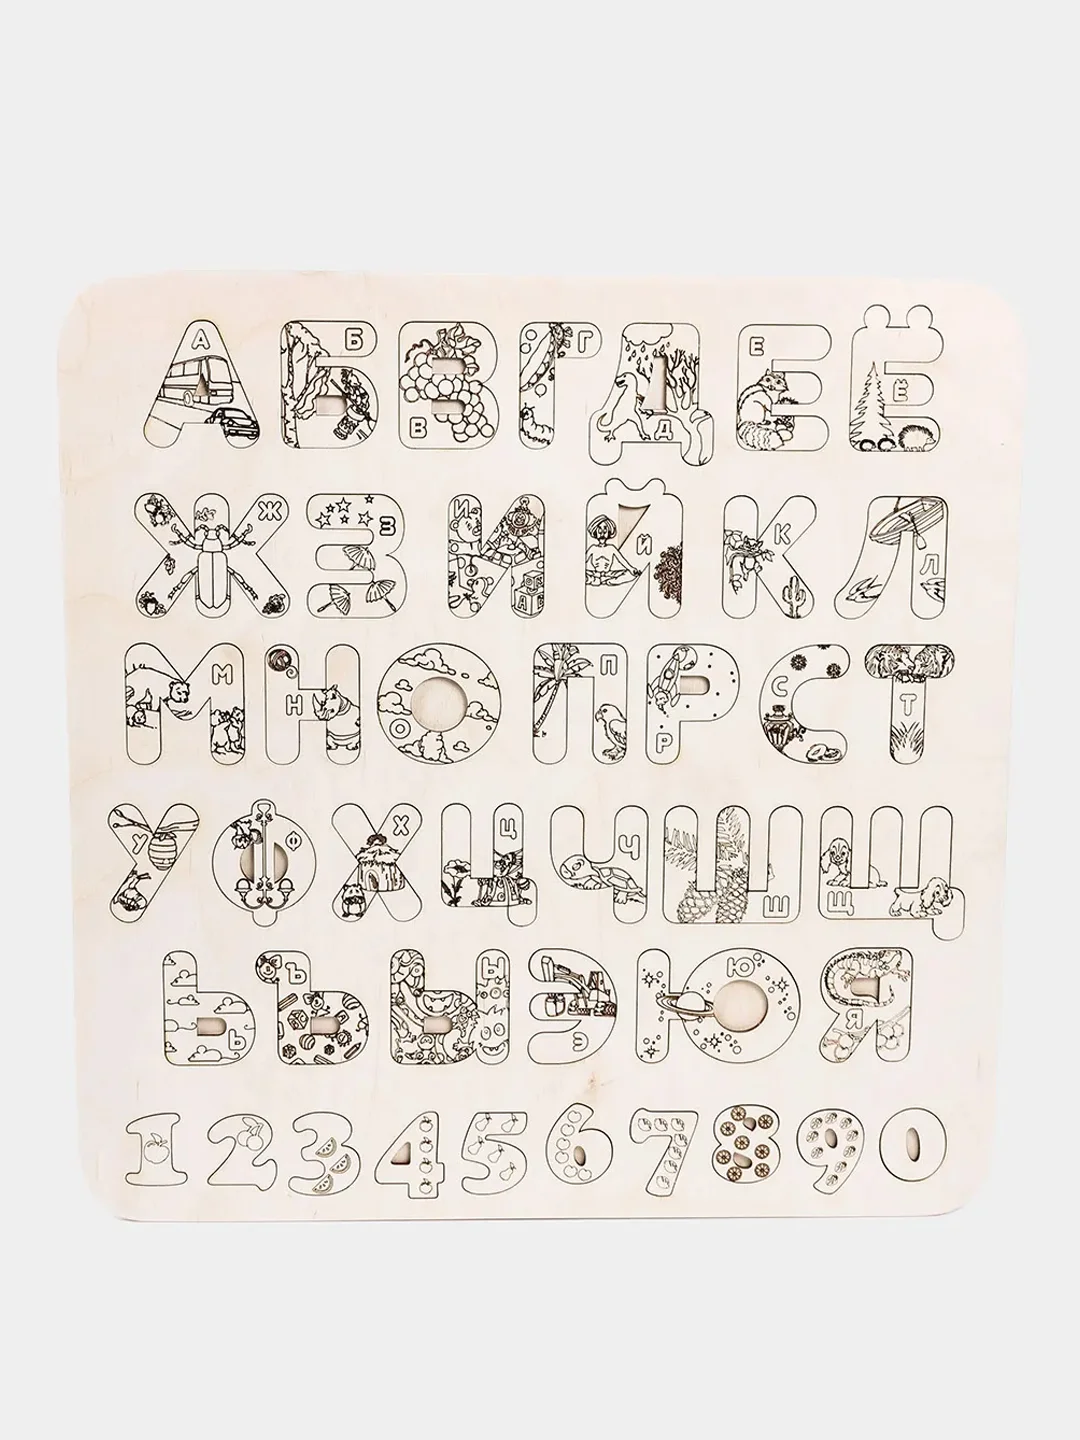 А Б В Г Д Е Ё
Ж З И Й К Л
М Н О П Р С Т
У Ф Х Ц Ч Ш Щ
Ь Ъ Ы Э Ю Я
1 2 3 4 5 6 7 8 9 0